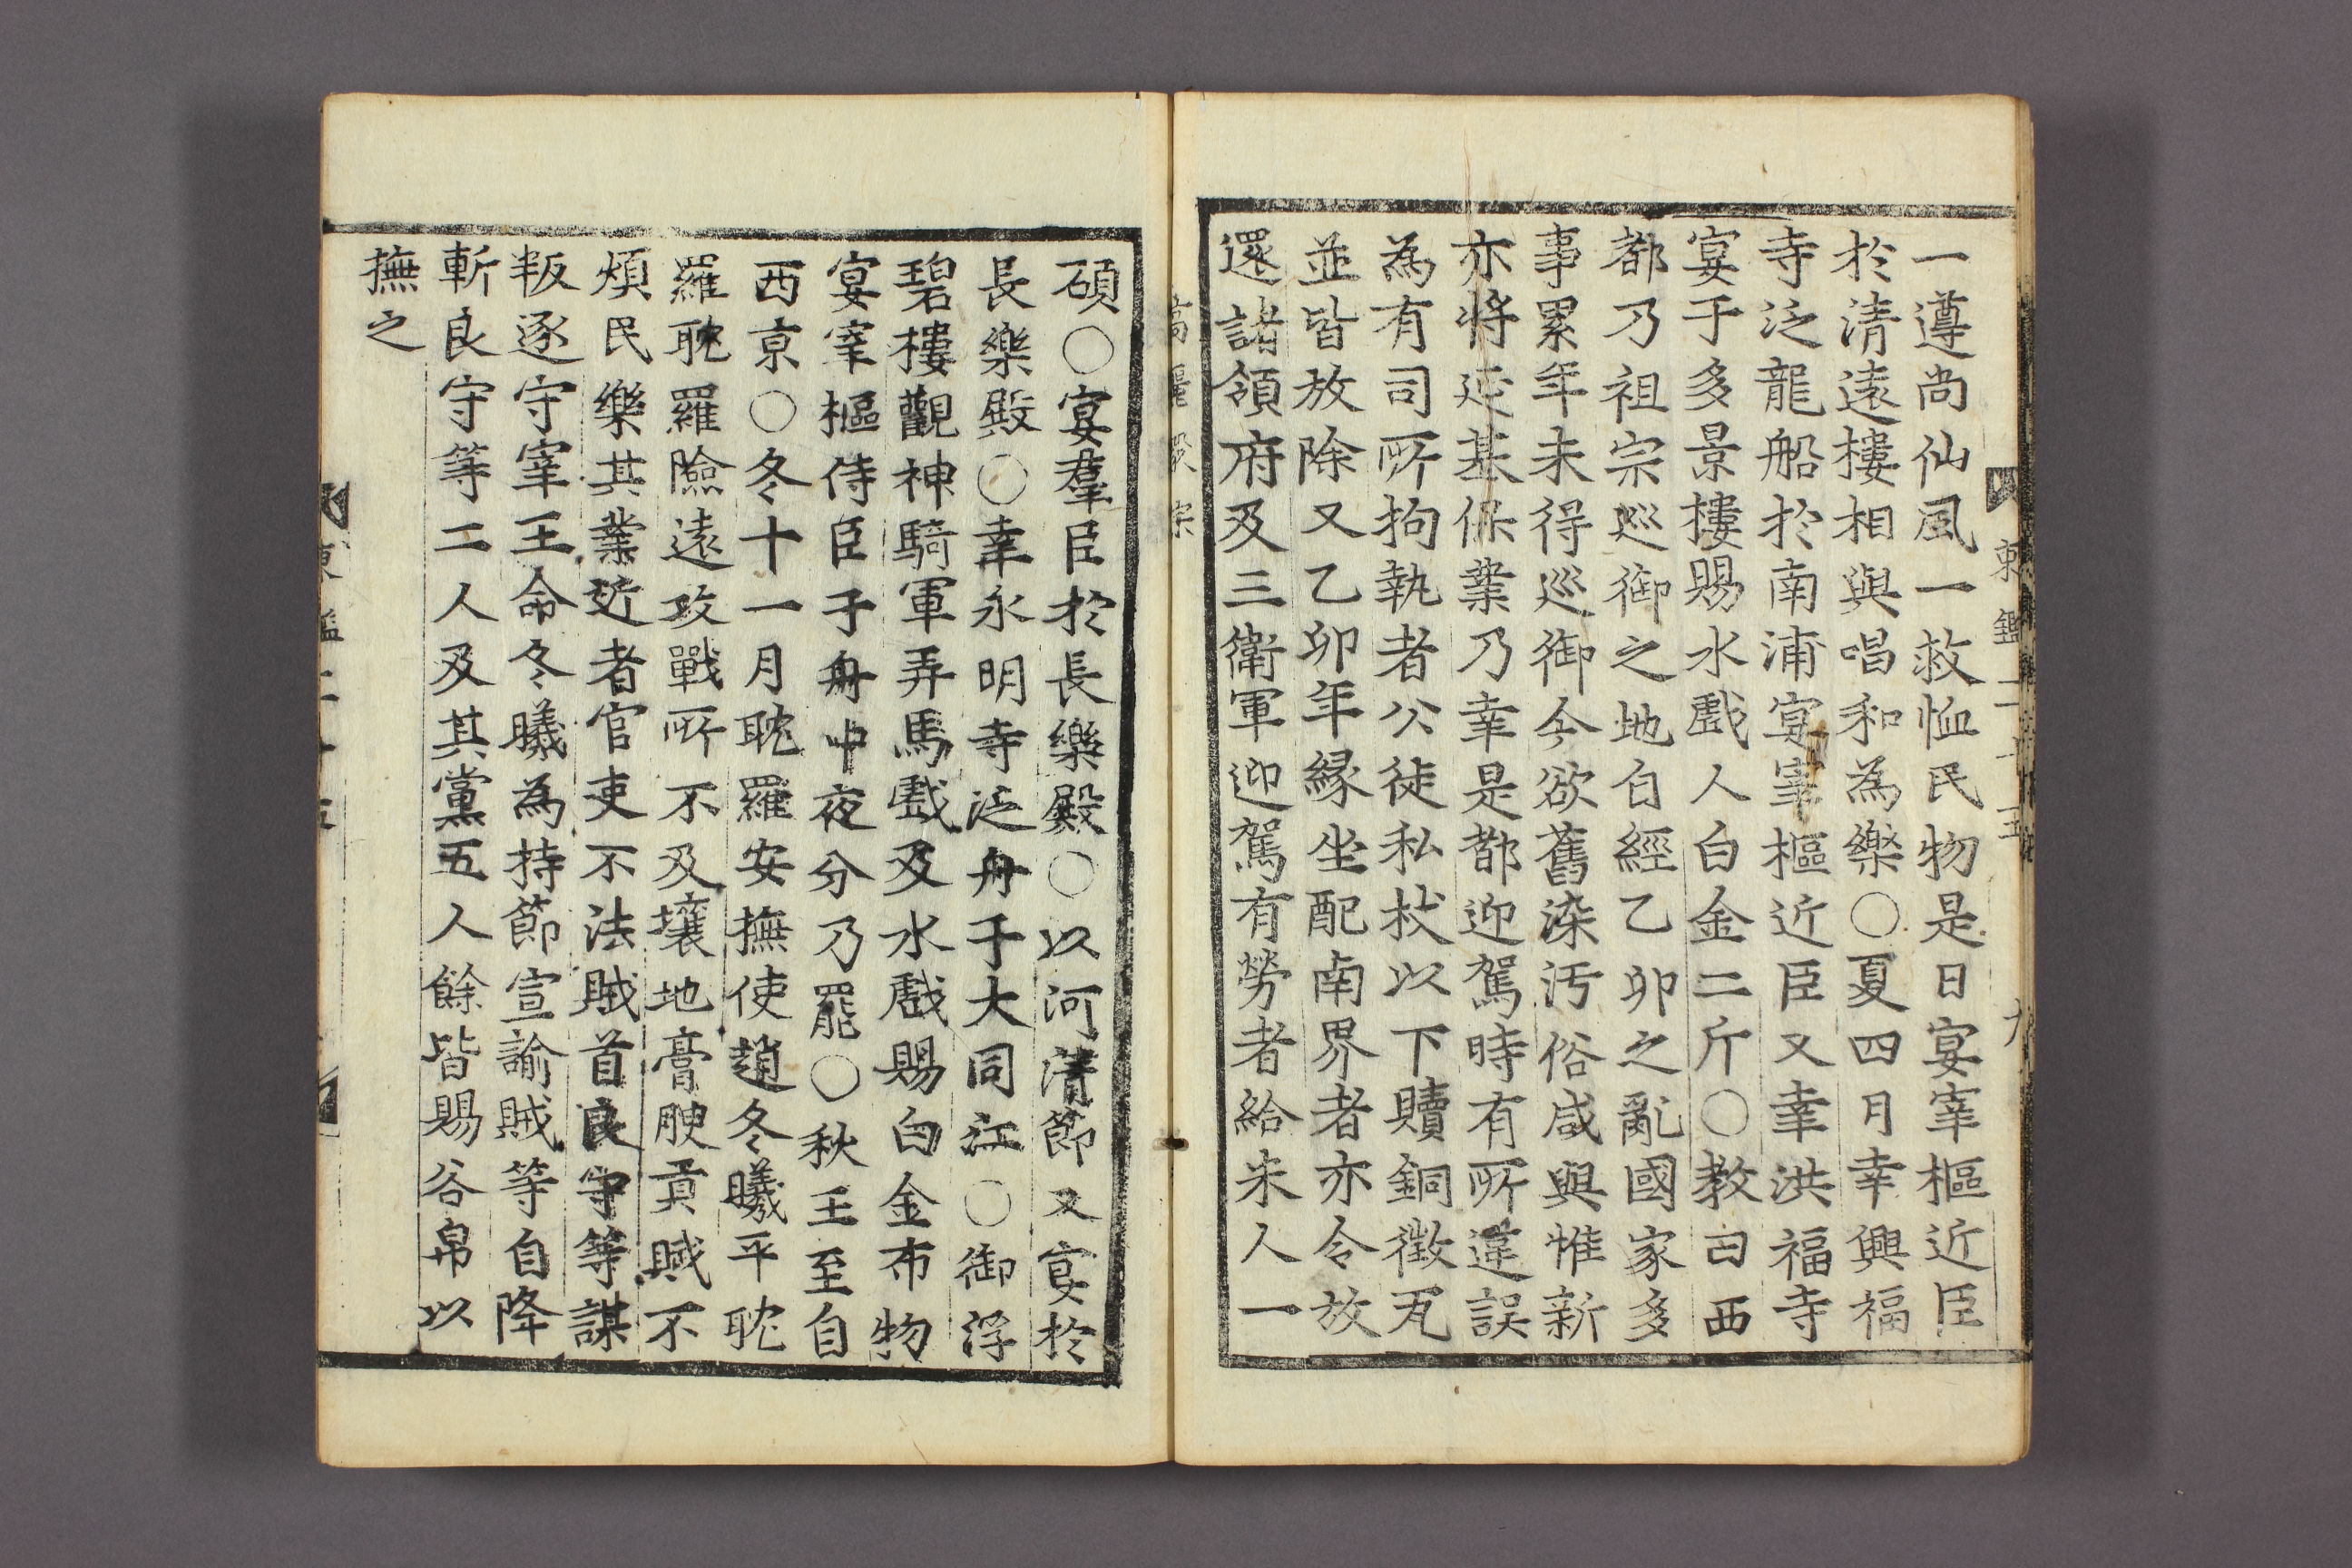 一遵尚仙風一救恤民物是日宴宰樞近臣
於清遠樓相與唱和為樂○夏四月幸興福
寺泛龍船於南浦宴宰樞近臣又幸洪福寺
宴于多景樓賜水戲人白金二斤○教曰西
都乃祖宗巡御之地自經乙卯之亂國家多
事累年未得巡御今欲舊染汚俗咸與惟新
亦將延基保業乃幸是都迎駕時有所違誤
為有司所拘執者公徒私杖以下贖銅徵瓦
並皆放除又乙卯年緣坐配南界者亦令放
還諸領府及三衛軍迎駕有勞者給米人一
高麗毅宗
碩○宴羣臣於長樂殿○以河清節又宴於
長樂殿○幸永明寺泛舟于大同江○御浮
碧樓觀神騎軍弄馬戲及水戲賜白金布物
宴宰樞侍臣于舟中夜分乃罷○秋王至自
西京○冬十一月耽羅安撫使趙冬曦平耽
羅耽羅險遠攻戰所不及壤地膏腴貢賦不
煩民樂其業近者官吏不法賊首良守等謀
叛逐守宰王命冬曦為持節宣諭賊等自降
斬良守等二人及其黨五人餘皆賜谷帛以
撫之